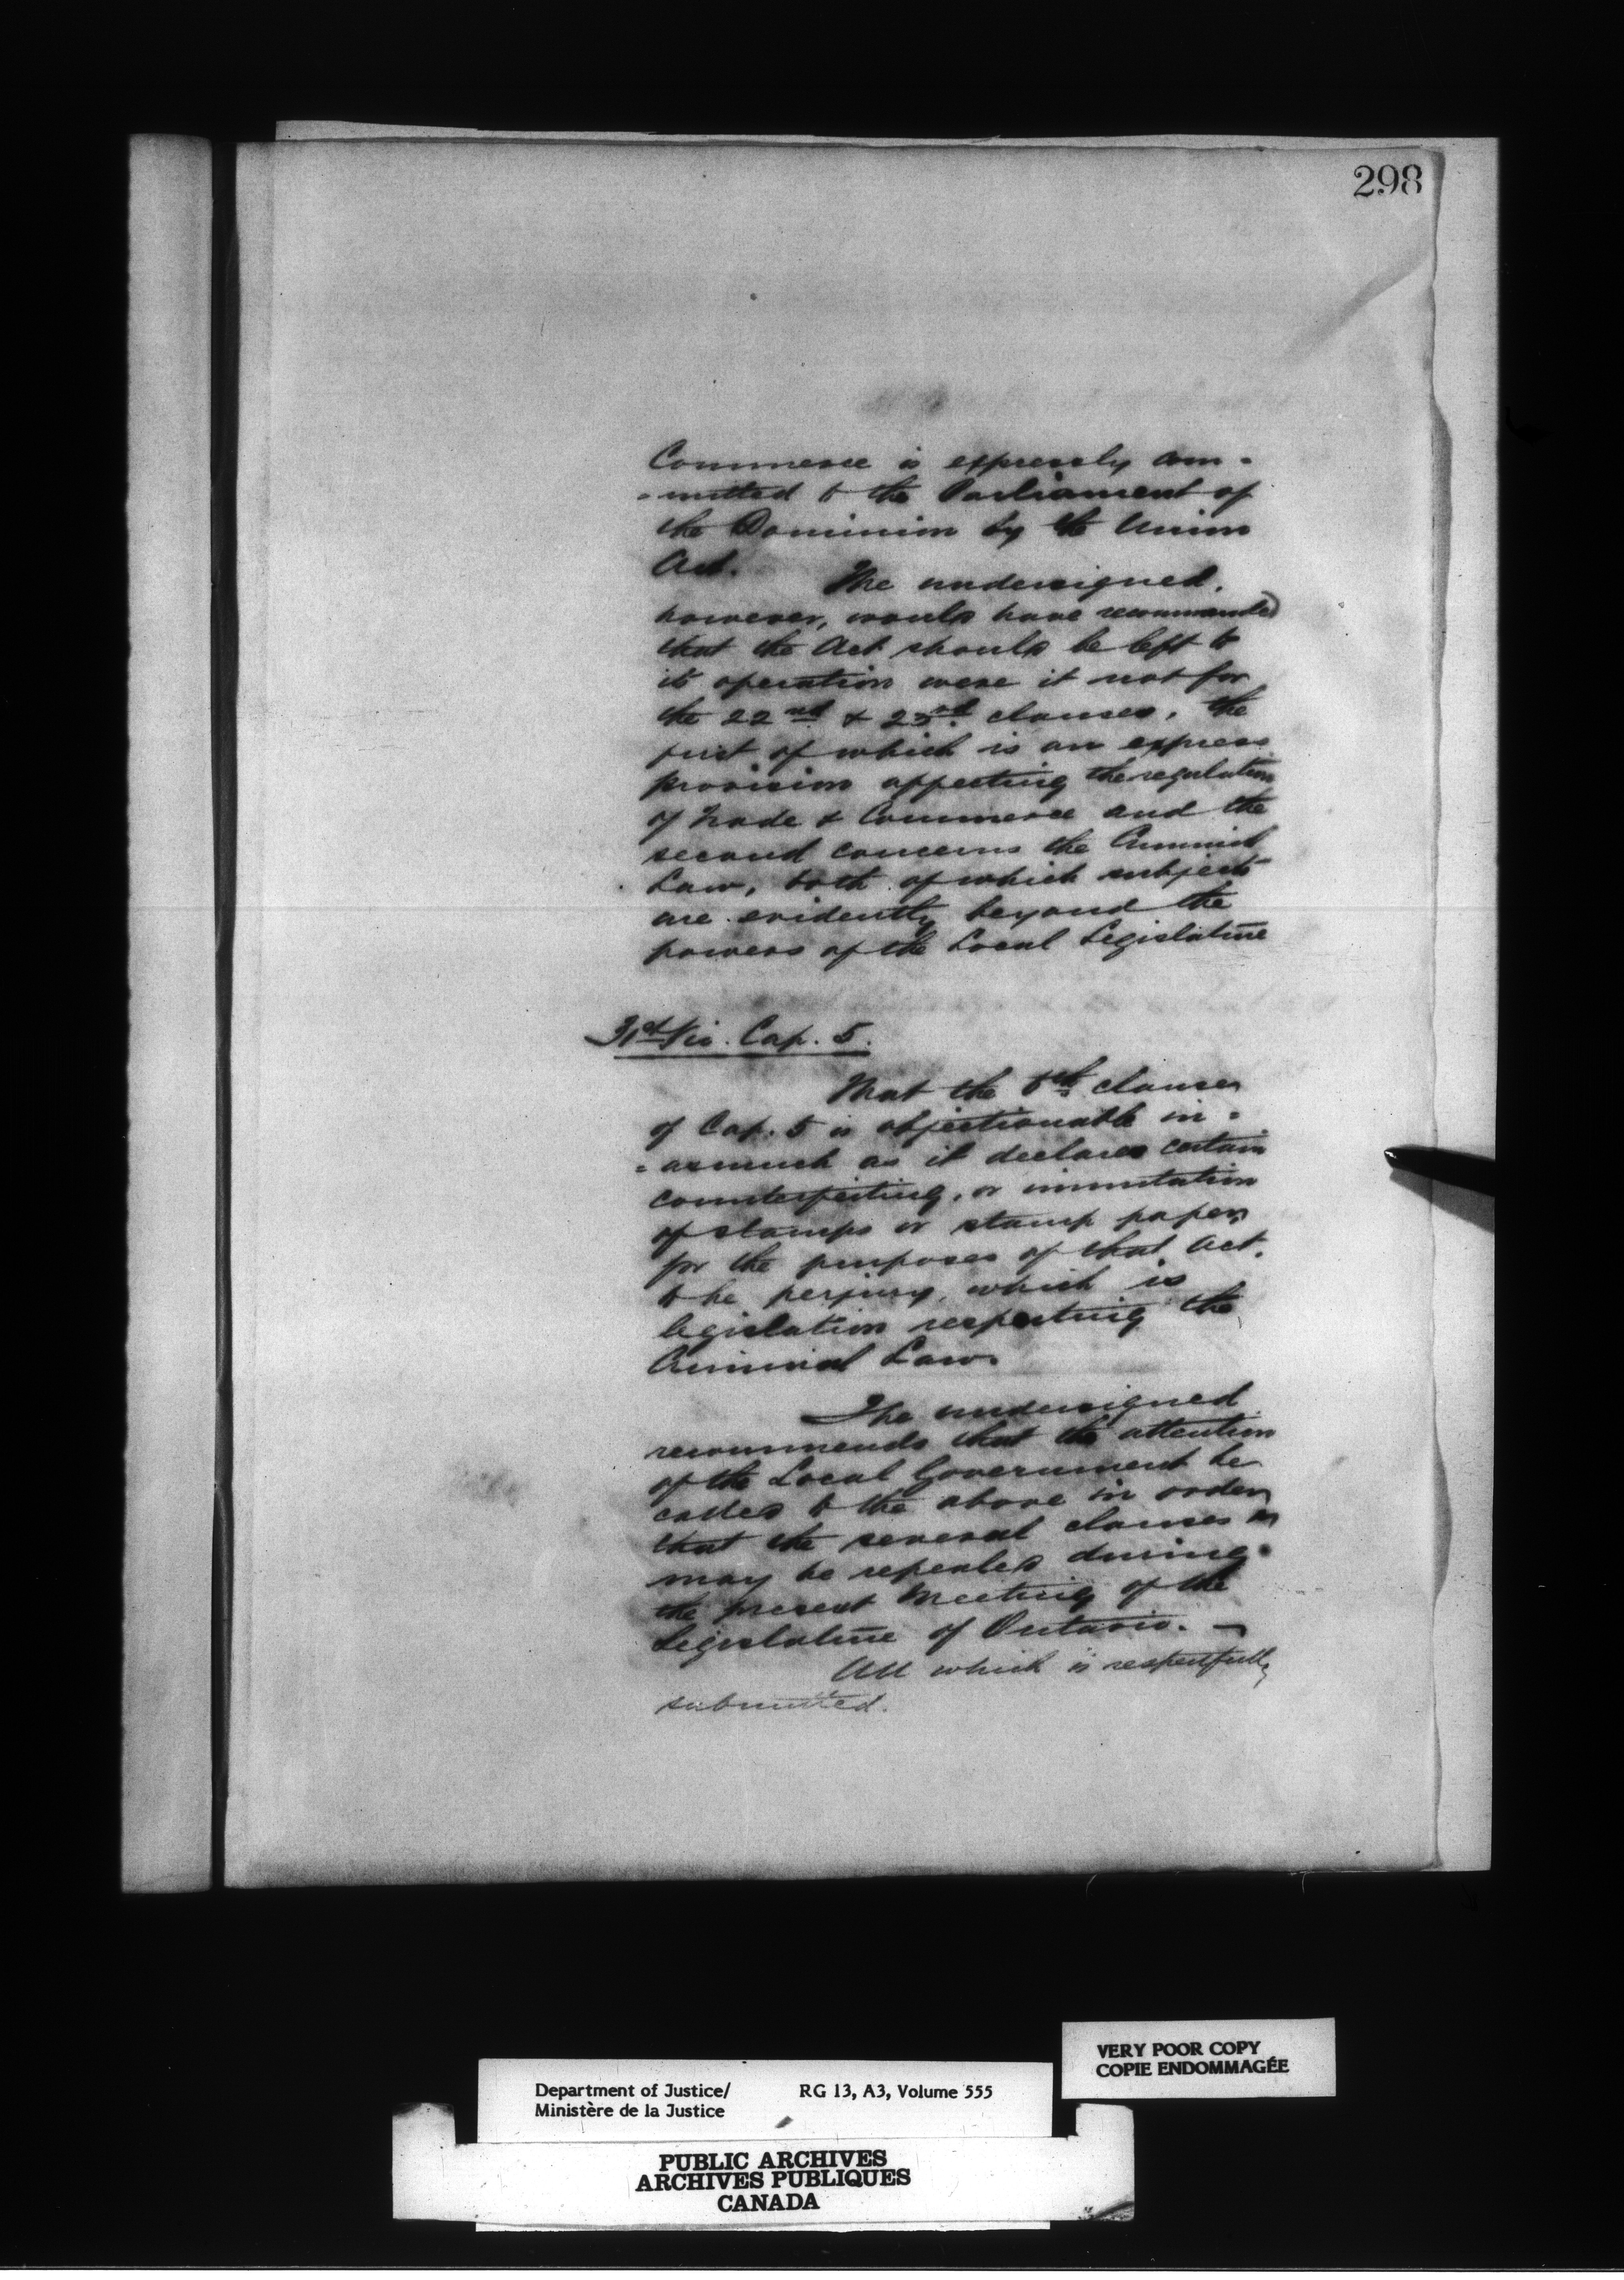 298
Commerce is expressly com-
-mitted to the Parliament of
the Dominion by the Union
Act.
The undersigned,
however, would have recommended
that the Act should be left to
its operation were it not for
the 22nd & 23rd clauses, the
first of which is an express
provision affecting the regulation
of Trade & Commerce and the
second concerns the Criminal
Law, both of which subjects
are evidently beyond the
powers of the Local Legislature
31st Vic. Cap. 5.
That the clause
of Cap. 5 is objectionable in=
=asmuch as it declares certain
counterfeiting, or immitation
of stamps or stamp paper
for the purposes of that Act,
to be perjury, which is
legislation respecting the
Criminal Law.
The undersigned
recommends that the attention
of the Local Government be
called to the above in order
that the several clauses
may be repealed during
the present Meeting of the
Legislature of Ontario. —
All which is respectfully
submitted.
VERY POOR COPY
COPIE ENDOMMAGÉE
Department of Justice/ RG 13, A3, Volume 555
Ministère de la Justice
PUBLIC ARCHIVES
ARCHIVES PUBLIQUES
CANADA